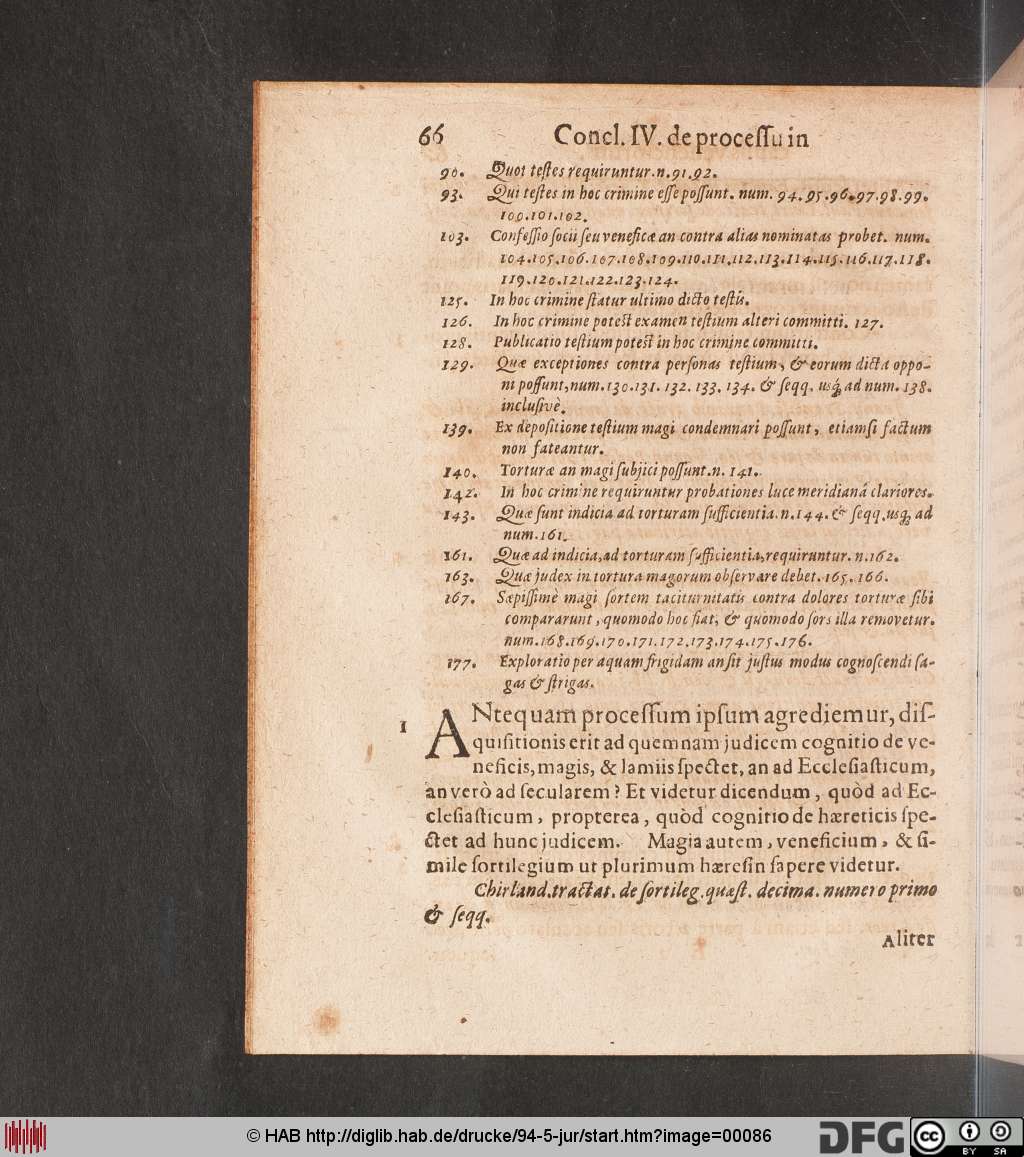 66 Concl. IV. de proceſſu in
90. Quot teſtes requiruntur. n. 91. 92.
93. Qui teſtes in hoc crimine eſſe poſſunt. num. 94. 95. 96. 97. 98. 99.
100. 101. 102.
103. Confeſſio ſocii ſeu veneficæ an contra alias nominatas probet. num.
104. 105. 106. 107. 108. 109. 110. 111. 112. 113. 114. 115. 116. 117. 118.
119. 120. 121. 122. 123. 124.
125. In hoc crimine ſtatur ultimo dicto teſtis.
126. In hoc crimine poteſt examen teſtium alteri committi. 127.
128. Publicatio teſtium poteſt in hoc crimine committi.
129. Quæ exceptiones contra perſonas teſtium, & eorum dicta oppo-
ni poſſunt, num. 130. 131. 132. 133. 134. & ſeqq. usq́; ad num. 138.
incluſivè.
139. Ex depoſitione teſtium magi condemnari poſſunt, etiamſi factum
non fateantur.
140. Torturæ an magi ſubjici poſſunt. n. 141.
142. In hoc crimine requiruntur probationes luce meridianâ clariores.
143. Quæ ſunt indicia ad torturam ſufficientia. n. 144. & ſeqq. usq́; ad
num. 161.
161. Quæ ad indicia, ad torturam ſufficientia, requiruntur. n. 162.
163. Quæ judex in tortura magorum obſervare debet. 165. 166.
167. Sæpiſſimè magi ſortem taciturnitatis contra dolores torturæ ſibi
compararunt, quomodo hoc fiat, & quomodo ſors illa removetur.
num. 168. 169. 170. 171. 172. 173. 174. 175. 176.
177. Exploratio per aquam frigidam an ſit juſtus modus cognoſcendi ſa-
gas & ſtrigas.
1 ANtequam proceſſum ipſum agrediemur, diſ-
quiſitionis erit ad quemnam judicem cognitio de ve-
neficis, magis, & lamiis ſpectet, an ad Eccleſiaſticum,
an verò ad ſecularem? Et videtur dicendum, quòd ad Ec-
cleſiaſticum, propterea, quòd cognitio de hæreticis ſpe-
ctet ad hunc judicem. Magia autem, veneficium, & ſi-
mile ſortilegium ut plurimum hæreſin ſapere videtur.
Chirland. tractat. de ſortileg. quæſt. decima. numero primo
& ſeqq.
Aliter
© HAB http://diglib.hab.de/drucke/94-5-jur/start.htm?image=00086
DFG
cc BY SA